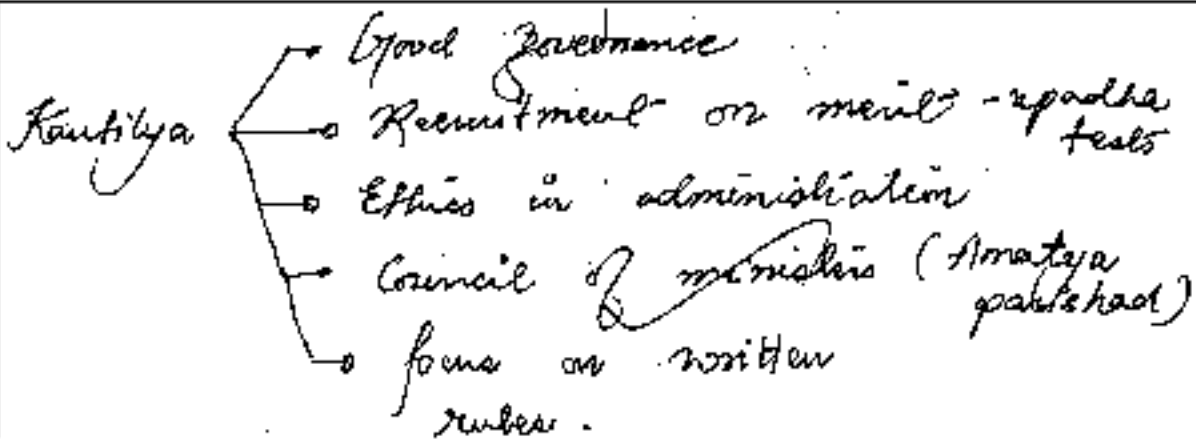 Good governance
Kautilya
Recruitment on merit - upadha
tests
Ethics in administration
Council of ministers (Amatya
parishad)
focus on written
rules.